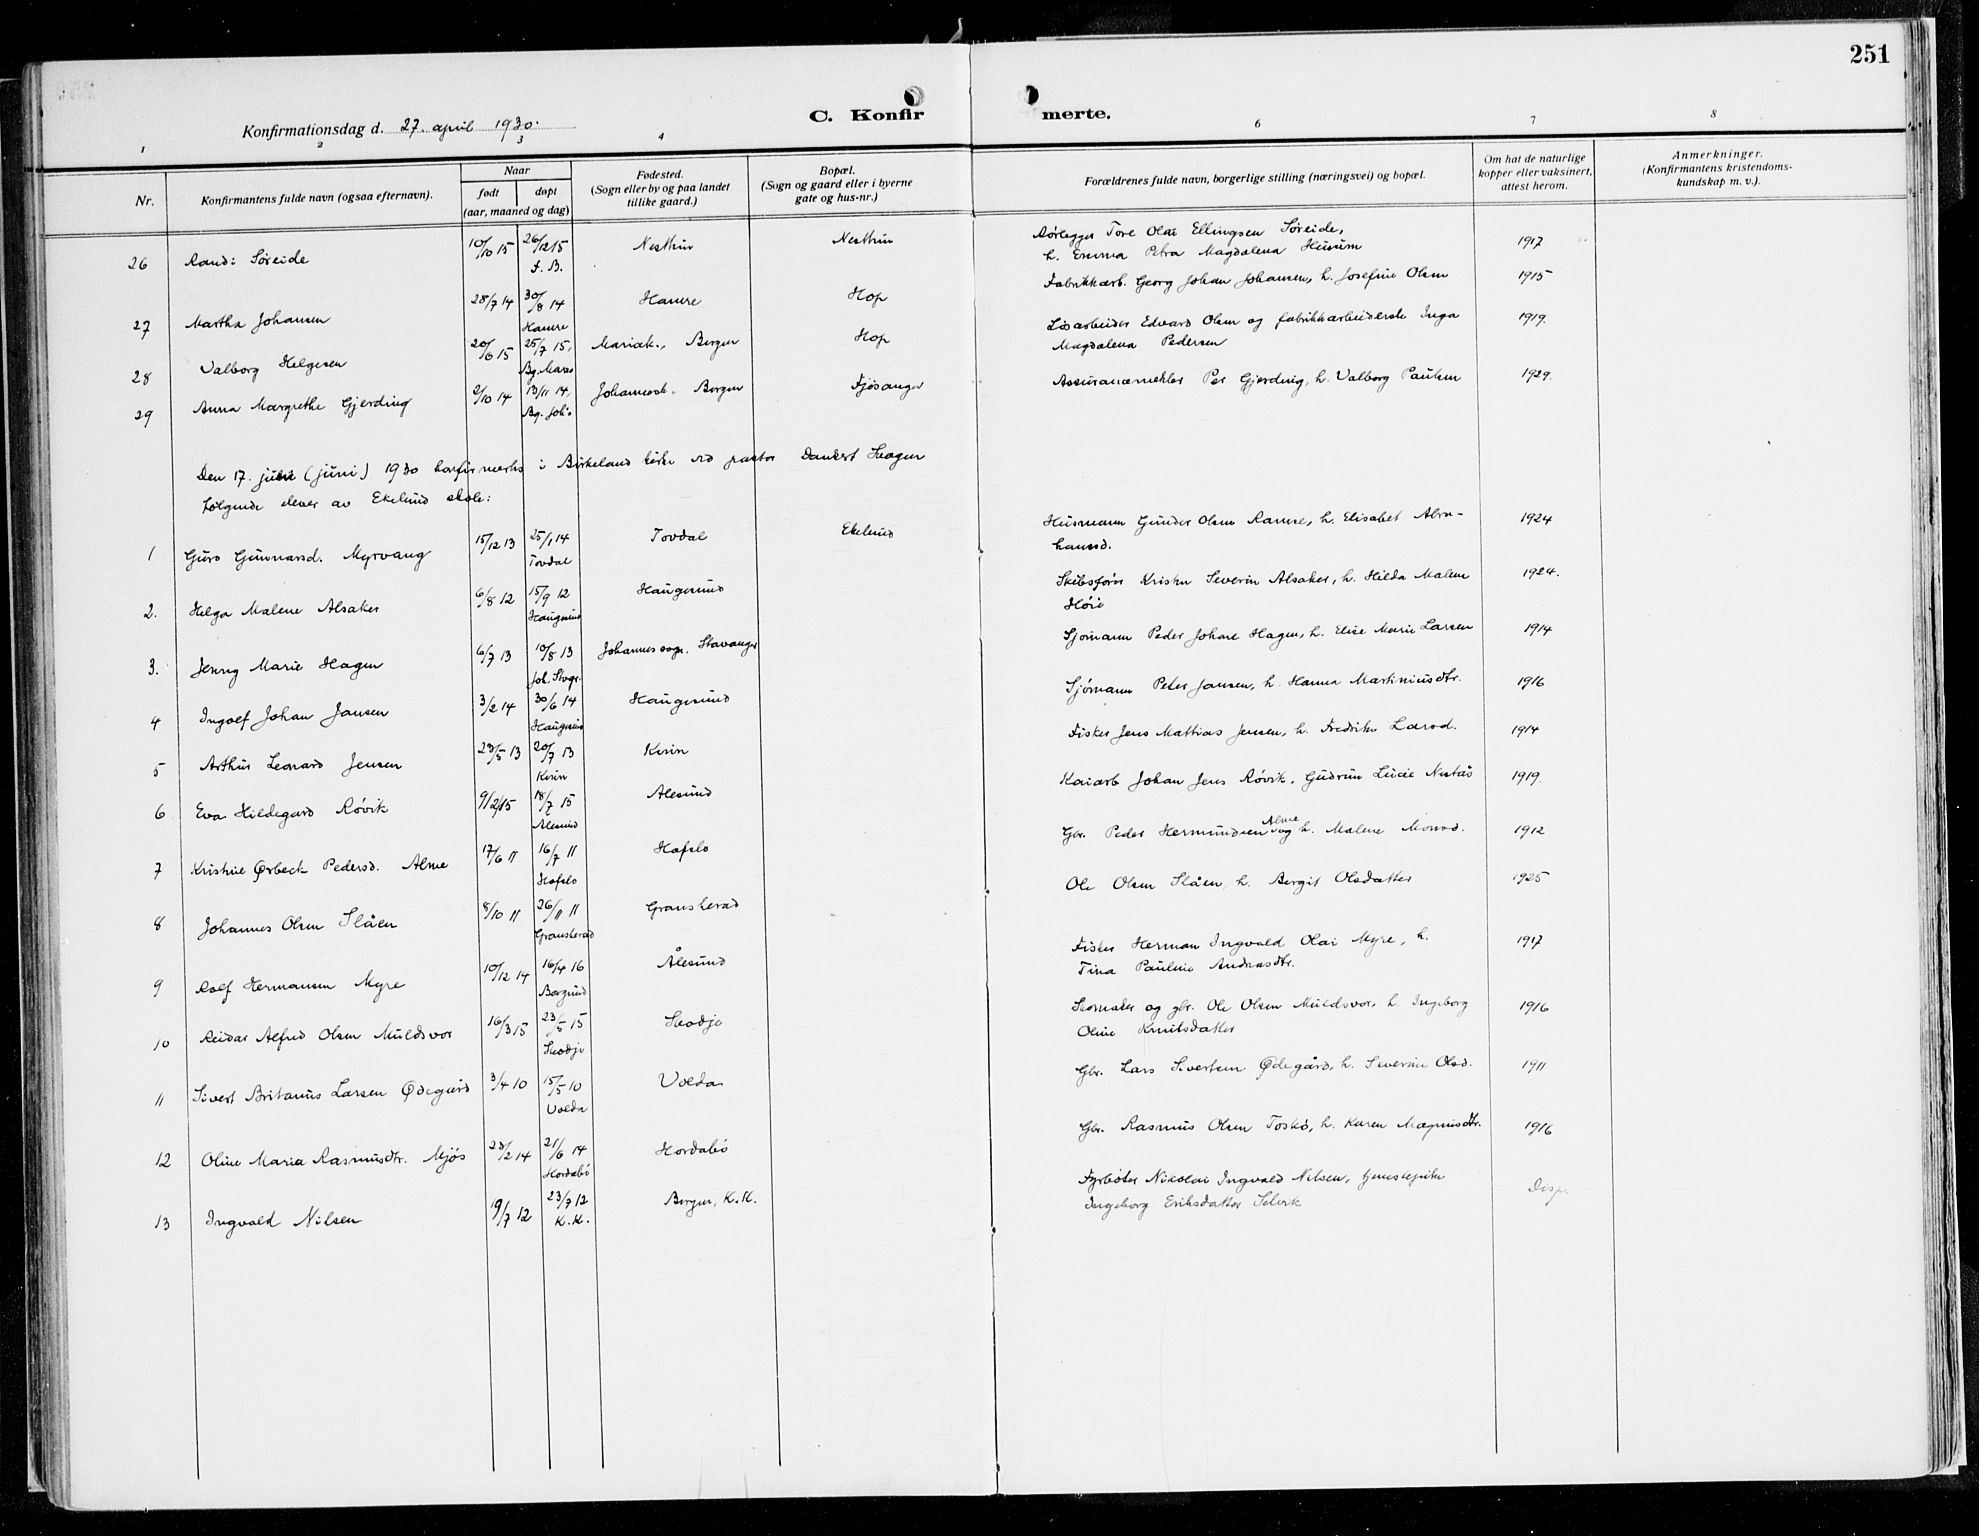 251
C. Konfirmerte.
Konfirmationsdag d. 27. april 1930.
1 2 3 4 6 7 8
Nr.
Konfirmantens fulde navn (ogsaa efternavn).
Naar
født døpt
(aar, maaned og dag)
Fødested.
(Sogn eller by og paa landet
tillike gaard.)
Bopæl.
(Sogn og gaard eller i byerne
gate og hus-nr.)
Forældrenes fulde navn, borgerlige stilling (næringsvei) og bopæl.
Om hat de naturlige
kopper eller vaksinert,
attest herom.
Anmerkninger.
(Konfirmantens kristendoms-
kundskap m. v.).
26 Randi Søreide 10/10 15 26/12 15 Nesttun Nesttun Rørlegger Tore Olai Ellingsen Søreide, 1917
F. B. h. Emma Petra Magdalena Husum
27 Martha Johansen 28/7 14 30/8 14 Hamre Hop Fabrikkarb. Georg Johan Johansen, h. Josefine Olsen 1915
Hamre
28 Valborg Helgesen 20/6 15 25/7 15, Mariak., Bergen Hop Løsarbeider Edvard Olsen og fabrikkarbeiderske Inga 1919.
Bg. Maria Magdalena Pedersen
29 Anna Margrethe Gjerding 2/10 14 13/11 14, Johannesk. Bergen Fjøsanger Assuransemekler Per Gjerding, h. Valborg Paulsen 1929.
Bg. Joh's
Den 17. juni (juni) 1930 konfirmertes i Birkeland kirke ved pastor Dankert Skagen
følgende elever av Ekelund skole:
1 Guro Gunnarsd. Myrvang 15/12 13 25/1 14 Tovdal Ekelund Husmann Gunder Olsen Ramse, h. Elisabet Abra- 1924
Tovdal hamsd.
2. Helga Malene Alsaker 6/8 12 15/9 12 Haugesund Skibsfører Kristen Severin Alsaker, h. Hilda Malene 1924.
Haugesund Høie
3. Jenny Marie Hagen 6/7 13 10/8 13 Johannes sogn. Stavanger Sjømann Peder Johan Hagen, h. Elise Marie Larsen 1914
Joh. Stvgr.
4 Ingolf Johan Jansen 3/2 14 30/6 14 Haugesund Sjømann Peter Jansen, h. Hanna Martiniusdtr. 1916
Haugesund
5 Arthur Leonard Jensen 23/5 13 20/7 13 Kinn Fisker Jens Mathias Jensen, h. Fredrikke Larsd. 1914
Kinn
6 Eva Hildegard Røvik 9/2 15 18/7 15 Ålesund Kaiarb Johan Jens Røvik, Gudrun Lucie Nestås 1919.
Ålesund
7 Kristine Ørbeck Pedersd. Alme 17/6 11 16/7 11 Hafslo Gbr. Peder Hermundsen Alme og h. Malene Monsd. 1912
Hafslo
8 Johannes Olsen Slåen 8/10 11 26/11 11 Gransherad Ole Olsen Slåen, h. Bergit Olsdatter 1925
Gransherad
9 Rolf Hermansen Myre 10/12 14 16/4 16 Ålesund Fisker Herman Ingvald Olai Myre, h. 1917
Borgund Tina Pauline Andreasdtr.
10 Reidar Alfred Olsen Muldsvor 16/3 15 23/5 15 Skodje Skomaker og gbr. Ole Olsen Muldsvor, h. Ingeborg 1916
Skodje Oline Knutsdatter
11 Sivert Britanus Larsen Ødegård 3/4 10 15/5 10 Volda Gbr. Lars Sivertsen Ødegård, h. Severine Olsd. 1911
Volda
12 Oline Maria Rasmusdtr. Mjøs 23/2 14 21/6 14 Hordabø Gbr. Rasmus Olsen Toskø, h. Karen Magnusdtr. 1916
Hordabø
13 Ingvald Nilsen 19/7 12 23/7 12 Bergen, K.K. Fyrbøter Nikolai Ingvald Nilsen, tjenestepike Disp.
K.K. Ingeborg Eriksdatter Selvik